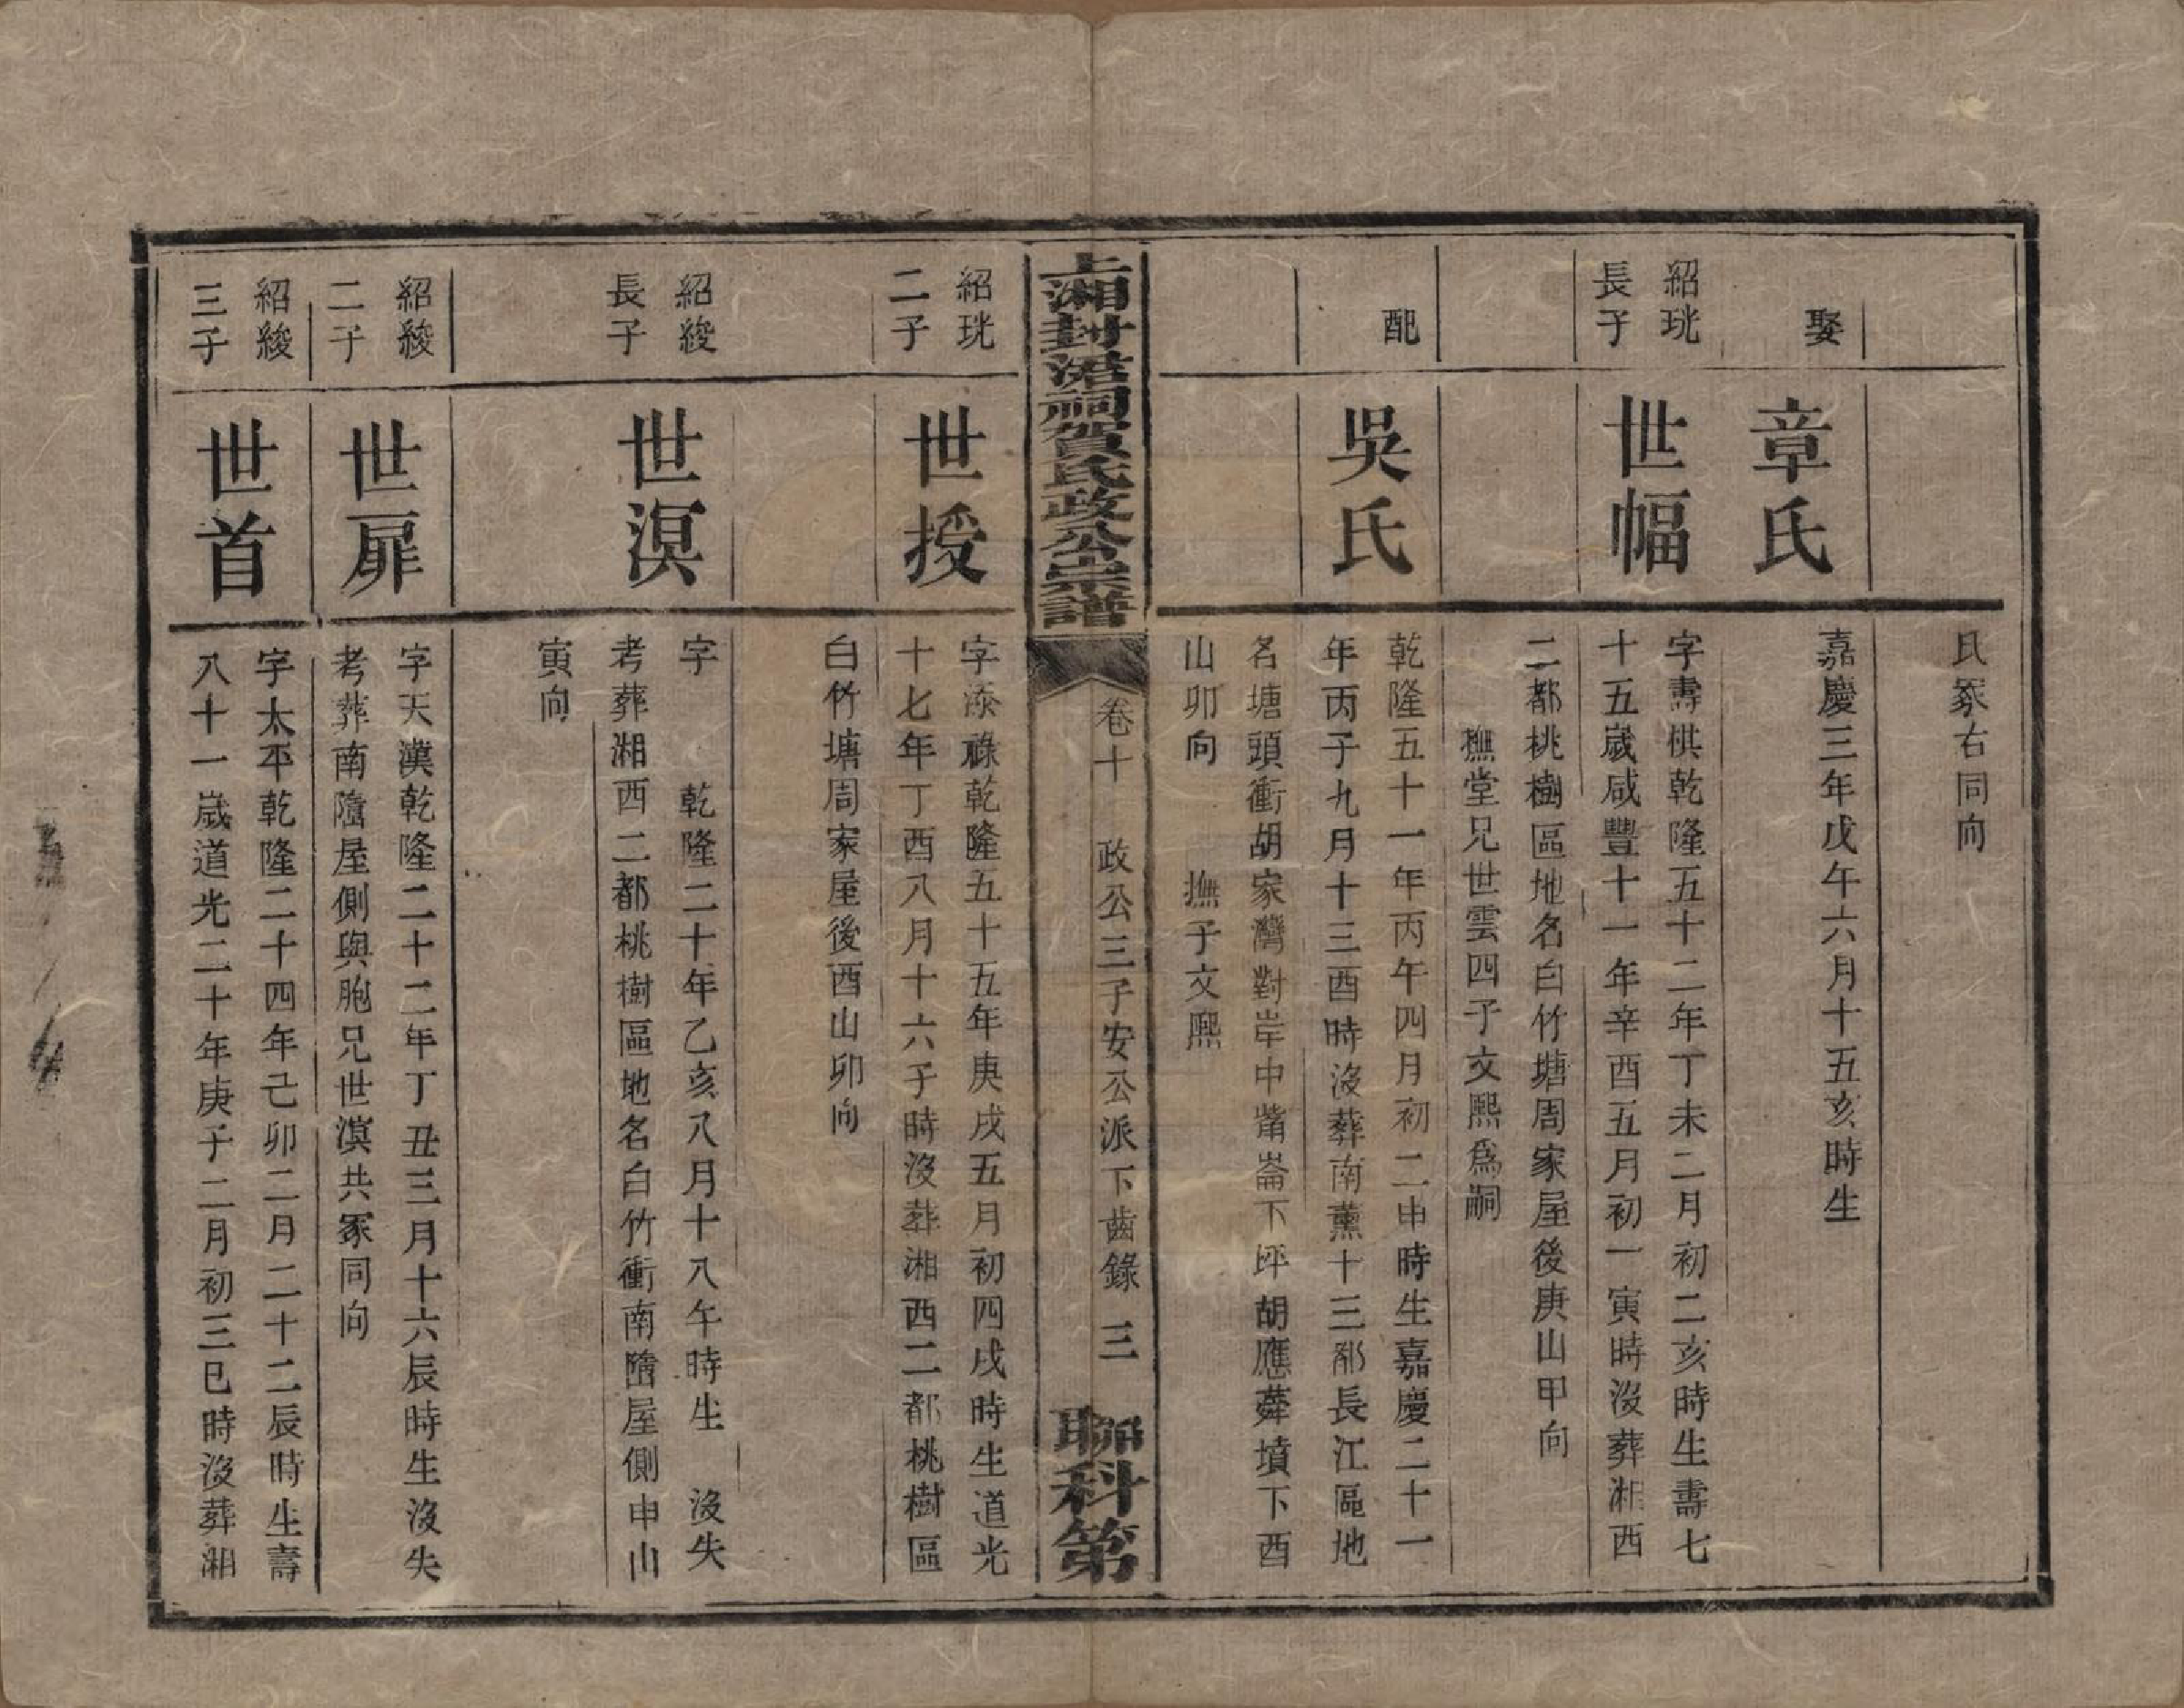 氏冢右同向
娶
章氏
嘉慶三年戊午六月十五亥時生
紹珖
長子
世幅
字壽棋乾隆五十二年丁未二月初二亥時生壽七
十五歲咸豐十一年辛酉五月初一寅時沒葬湘西
二都桃樹區地名白竹塘周家屋後庚山甲向
撫堂兄世雲四子文熙為嗣
配
吳氏
乾隆五十一年丙午四月初二申時生嘉慶二十一
年丙子九月十三酉時沒葬南薰十三都長江區地
名塘頭衝胡家灣對岸中崙下坪胡應墳下酉
山卯向　撫子文熙
上湘封湉祠賀氏政公宗譜
卷十　政公三子安公派下齒錄　三
聯科第
紹珖
二子
世授
字添祿乾隆五十五年庚戌五月初四戌時生道光
十七年丁酉八月十六子時沒葬湘西二都桃樹區
白竹塘周家屋後酉山卯向
紹綾
長子
世溟
字　乾隆二十年乙亥八月十八午時生　沒失
考葬湘西二都桃樹區地名白竹衝南隋屋側申山
寅向
紹綾
二子
世扉
字天漢乾隆二十二年丁丑三月十六辰時生沒失
考葬南隋屋側與胞兄世溟共冢同向
紹綾
三子
世首
字太平乾隆二十四年己卯二月二十二辰時生壽
八十一歲道光二十年庚子二月初三巳時沒葬湘